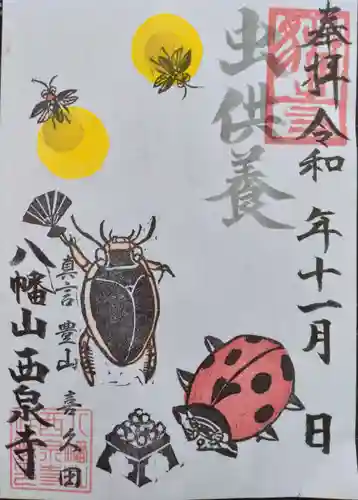 奉拝 令和 年十一月 日
虫供養
真言 豊山 喜久田
八幡山 西泉寺